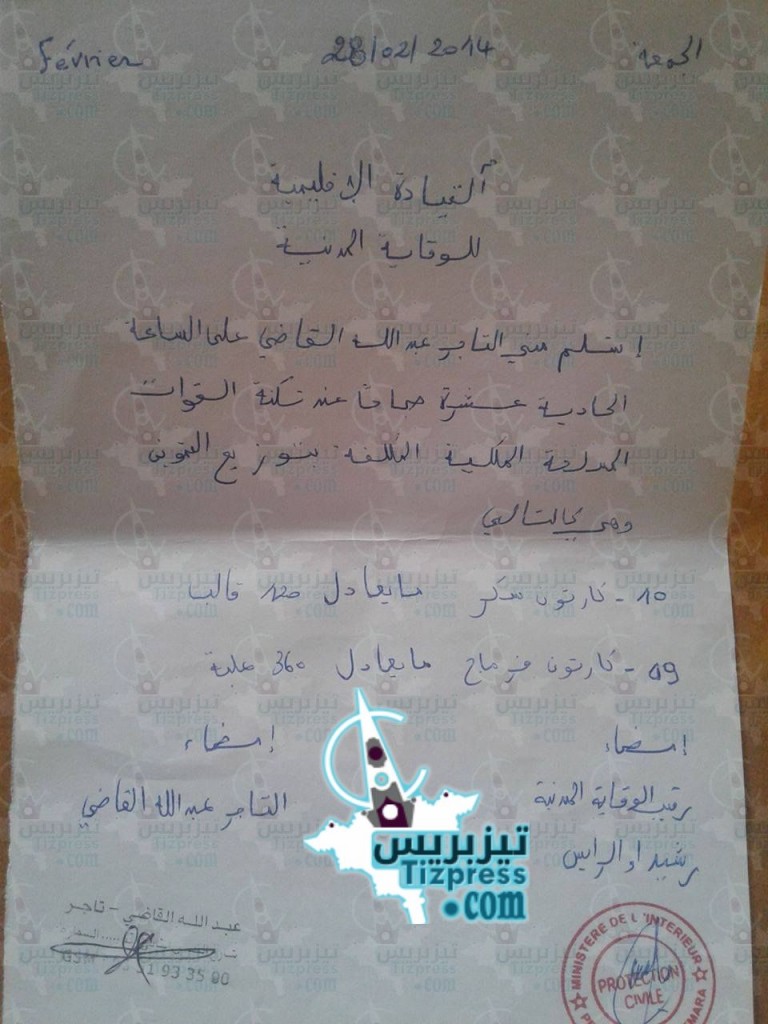 الجمعة 28/02/2014 Février
القيادة الإقليمية
للوقاية المدنية
إستلم مني التاجر عبد الله القاضي على الساعة
الحادية عشرة صباحا عند ثكنة القوات
المسلحة الملكية المكلفة بتوزيع التموين
وهي كالتالي
10 - كارتون سكر مايعادل 120 قالبا
09 - كارتون فرماج مايعادل 360 علبة
إمضاء إمضاء
رقيب الوقاية المدنية التاجر عبد الله القاضي
رشيد او الرايس
تيزبريس
Tizpress
.com
عبد الله القاضي - تاجر
GSM
MINISTERE DE L'INTERIEUR
PROTECTION
CIVILE